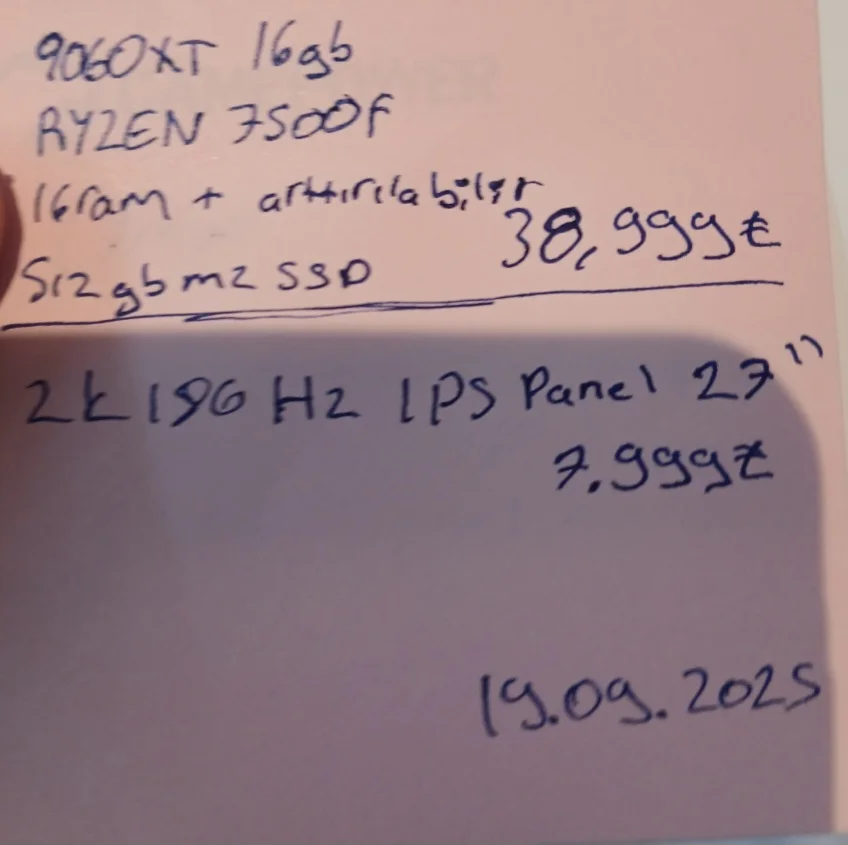 9060XT 16gb
RYZEN 7500F
16ram + arttırılabilir
38,999₺
512gb m2 SSD
2k 180 Hz IPS Panel 27"
7.999₺
19.09.2025